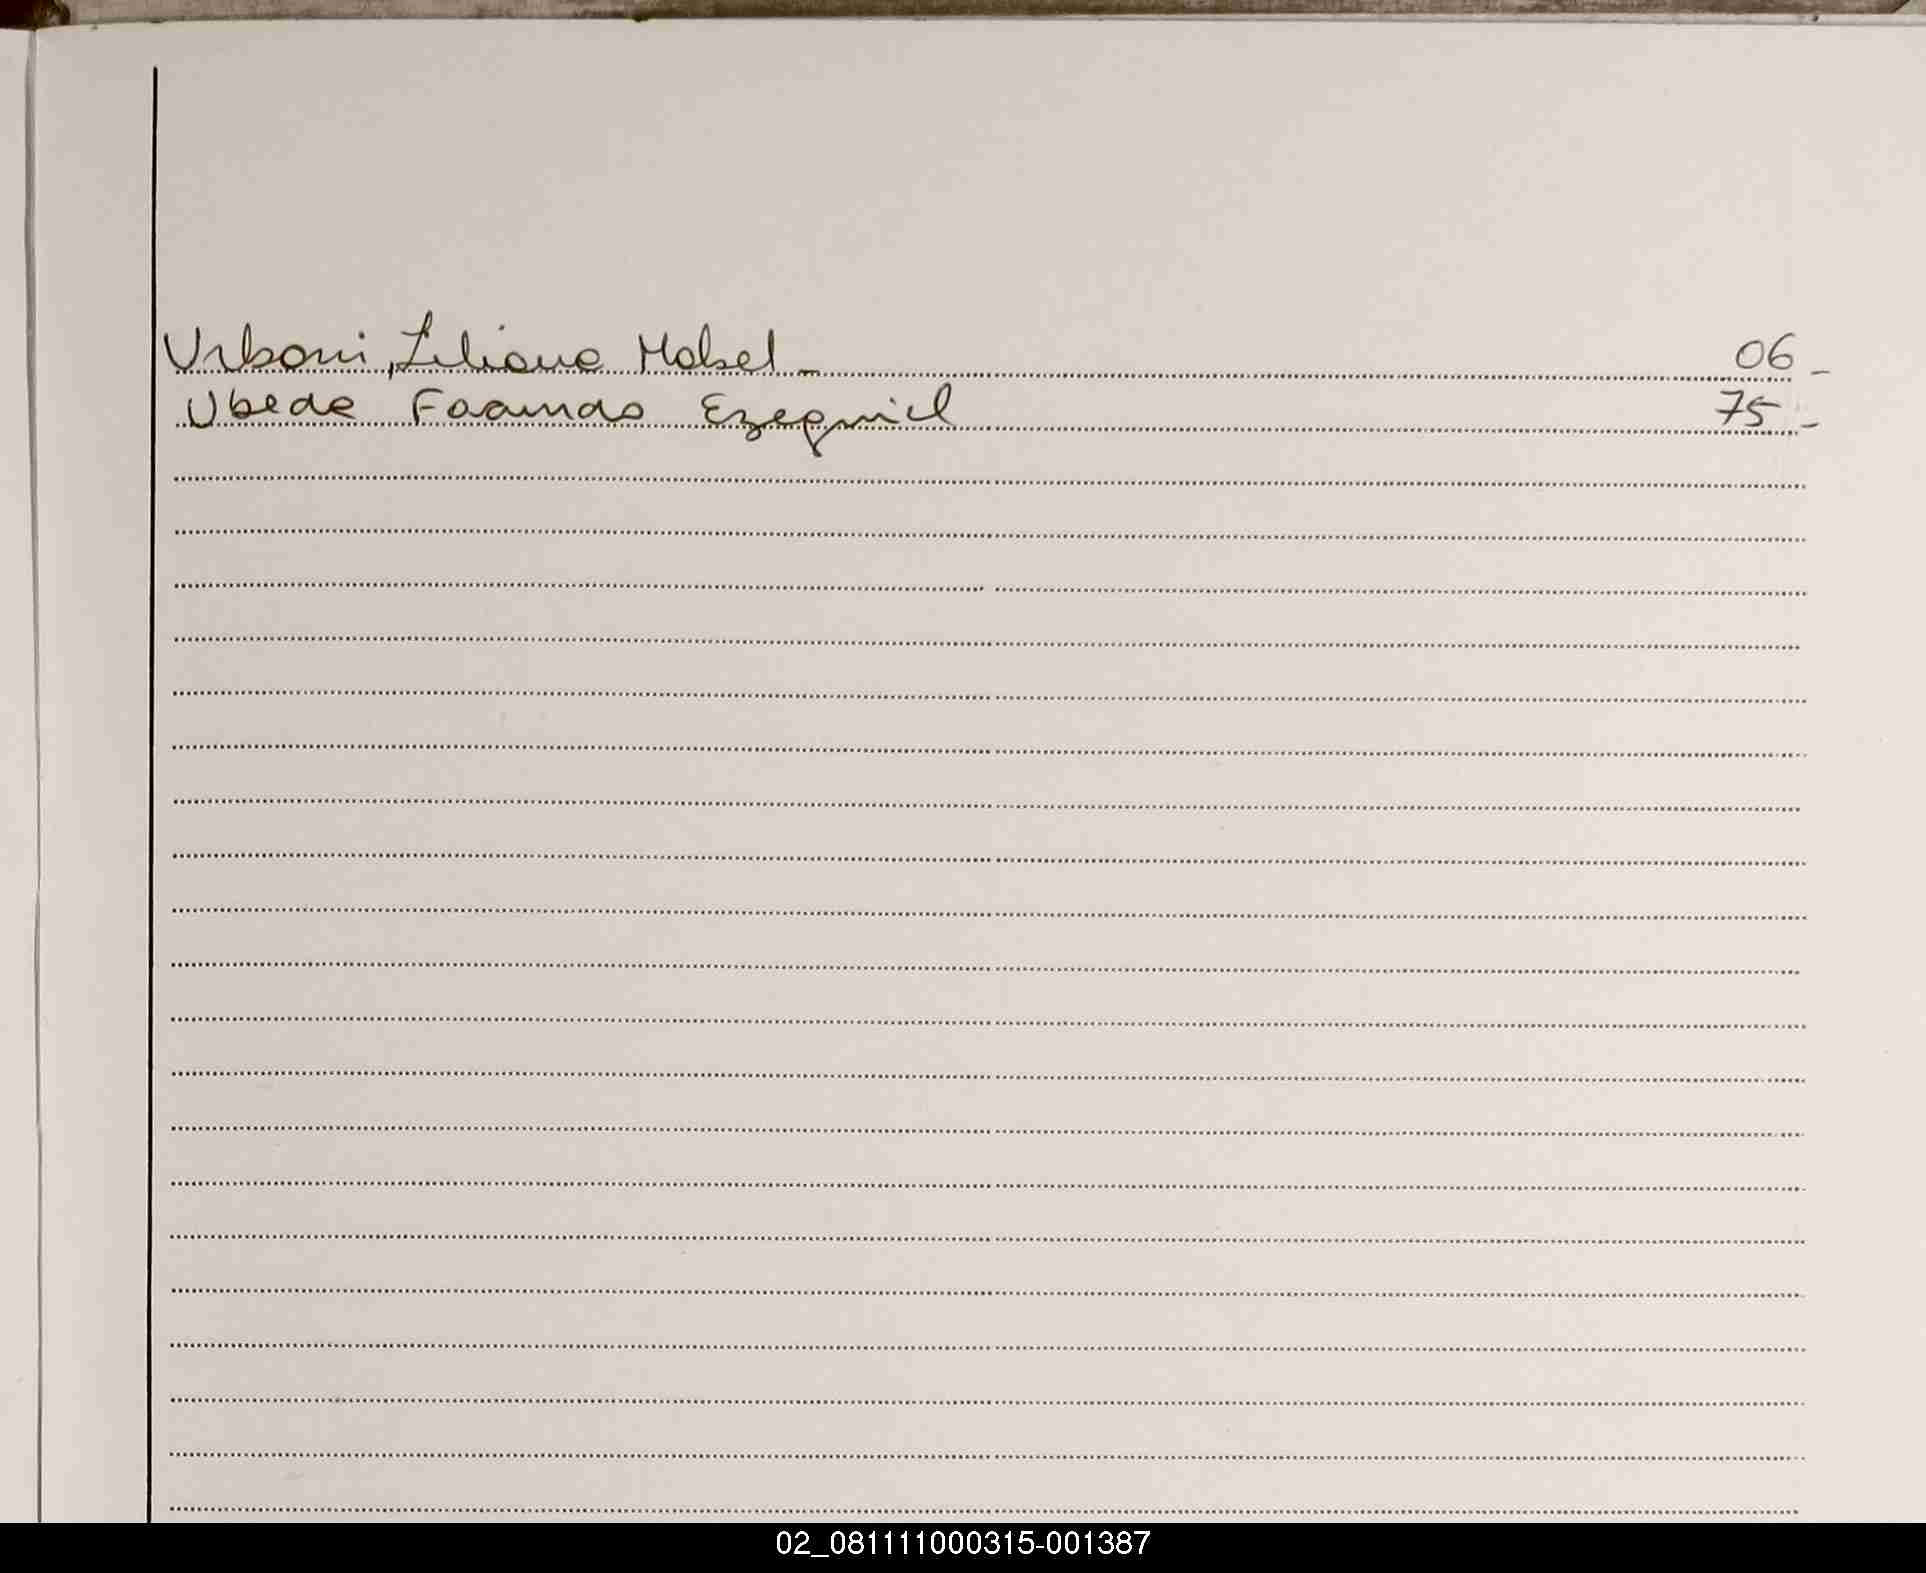 Urbani, Liliana Mabel - 06 -
Ubeda Facundo Ezequiel 75 -
02_081111000315-001387